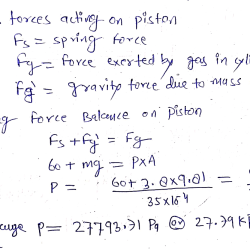 forces acting on piston
Fs = spring force
Fg = Force exerted by gas in cyli
Fg' = gravity force due to mass
g Force Balance on Piston
Fs + Fg' = Fg
60 + mg = P×A
P = 60 + 3.0×9.81 / 35×10^-4 =
auge P = 27793.71 Pa or 27.79 K